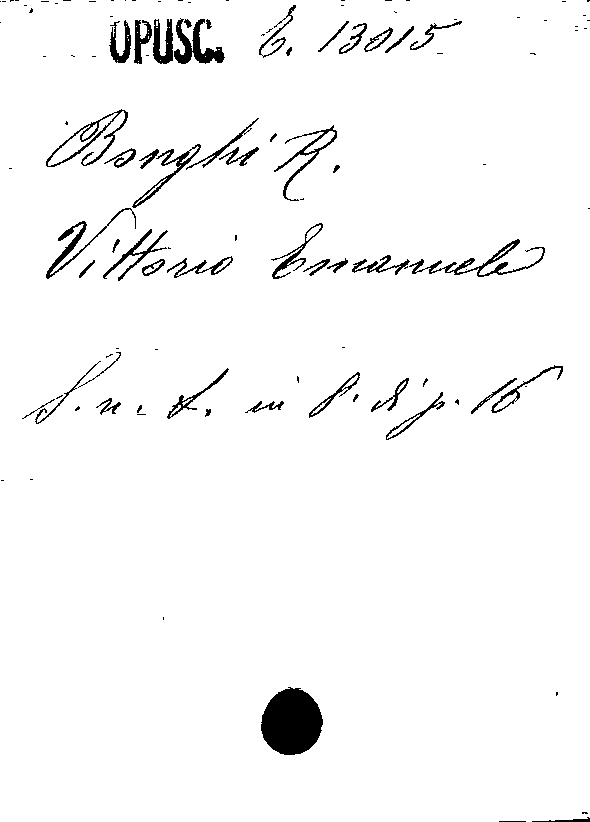 OPUSC. E. 13015
Bonghi R.
Vittorio Emanuele
S. n. t. in 8. di p. 16